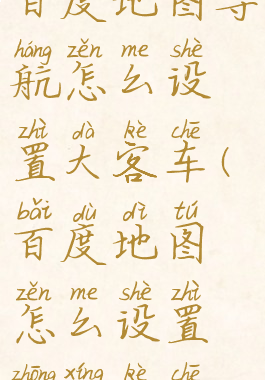 百度地图导
háng zěn me shè
航怎么设
zhì dà kè chē
置大客车(
bǎi dù dì tú
百度地图
zěn me shè zhì
怎么设置
zhōng xíng kè chē